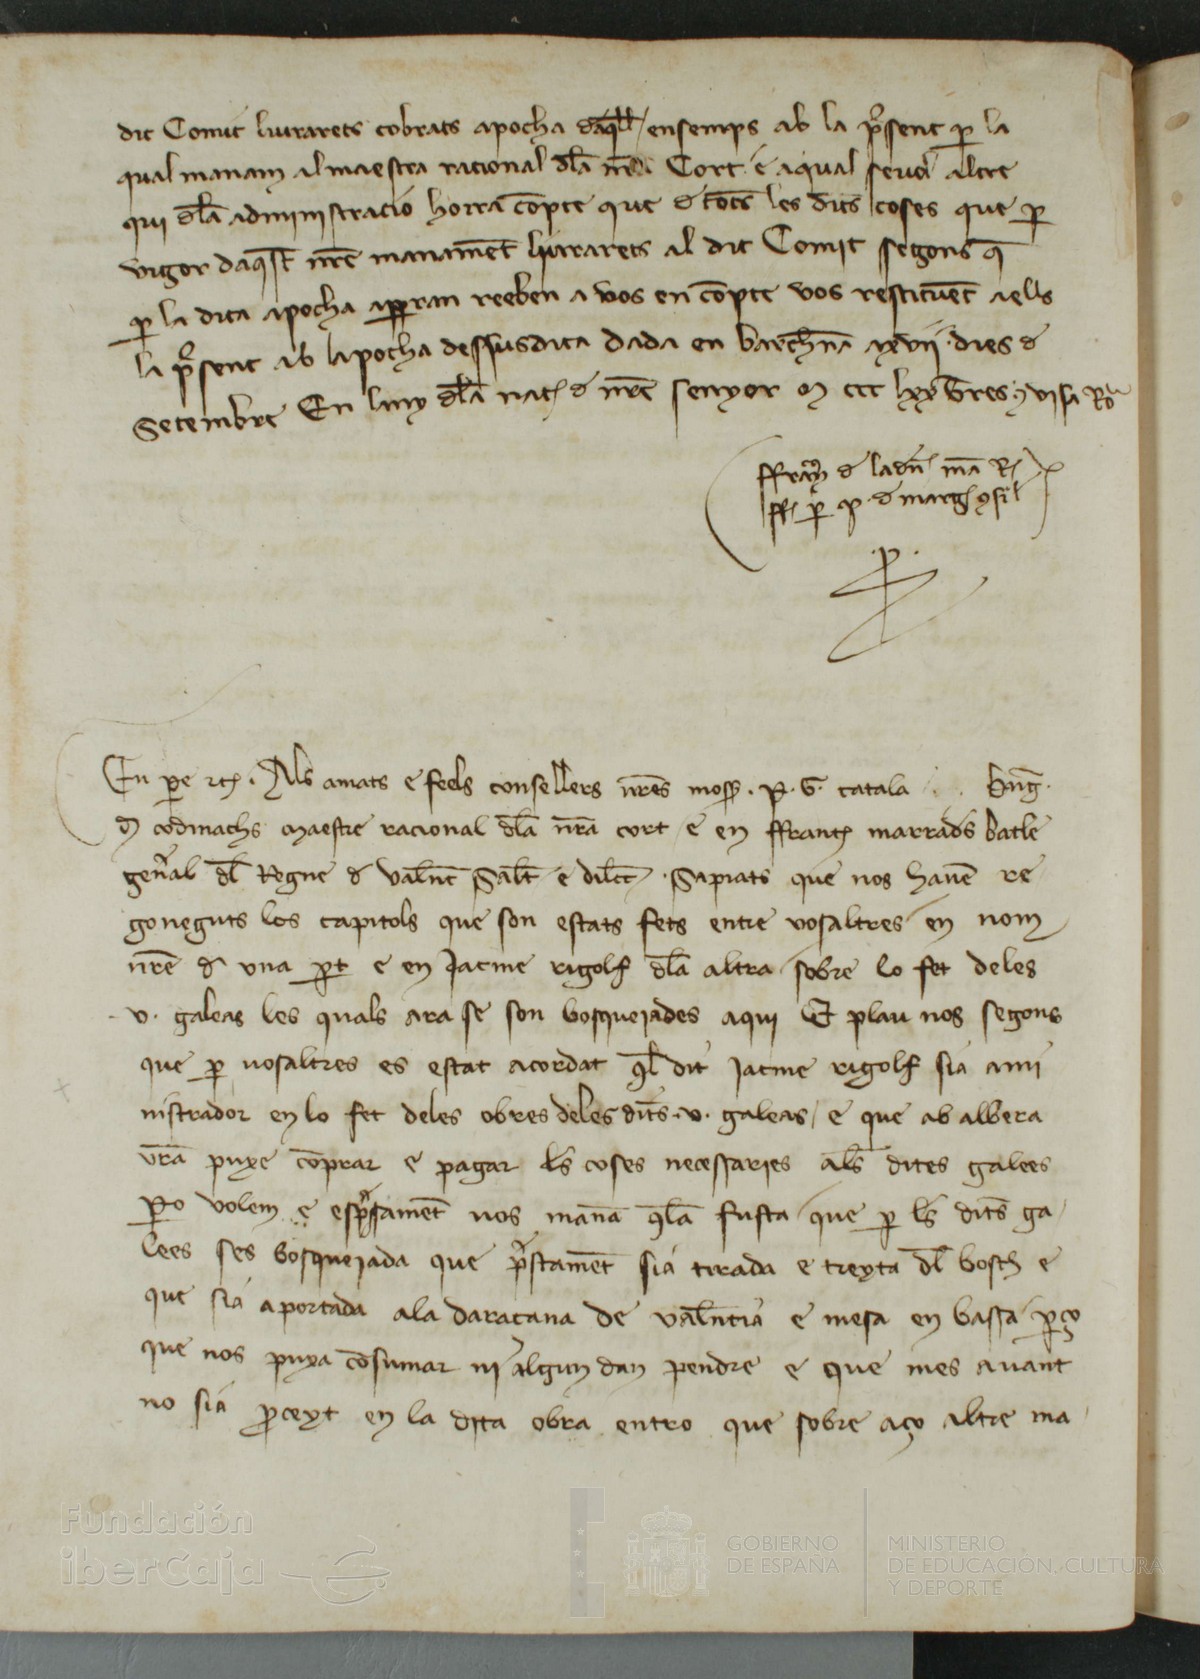 dit Comit liurarets cobrats apocha daqll ensemps ab la psent p la
qual manam al maestra racional dla nra Cort e a qual sevol altre
qui dla administracio horra compte que d totes les dits coses que p
vigor daqst nre manament liurarets al dit Comit segons q
p la dita apocha apparran reeben a vos en compte vos restituent a ells
la psent ab lapocha dessusdita dada en barchna xxvii dies d
Setembre En lany dla nat d nre senyor M ccc lxx tres visa Ro

En pere etc. Als amats e feels consellers nres moss. P. G. catala . . bng.
d codinachs maestre racional dla nra cort e en ffranc marrades batle
genal dl Regne d valnc Salt e dilcc . Sapiats que nos havem re
goneguts los capitols que son estats fets entre vosaltres en nom
nre d una part e en Jacme rigolf dla altra sobre lo fet de les
.v. galeas les quals ara se son bosquejades aqui Et plau nos segons
que p vosaltres es estat acordat ql dit Jacme rigolf sia ami
nistrador en lo fet deles obres deles dits .v. galeas e que ab albera
vra puxe comprar e pagar les coses necessaries als dites galees
Pero volem e espssament vos manam qla fusta que p ls dits ga
lees ses bosquejada que pstament sia tirada e treyta dl bosch e
que sia aportada ala daraçana de valncia e mesa en bassa pço
que nos puxa consumar ni algun dan pendre e que mes avant
no sia proceyt en la dita obra entro que sobre aço altre ma
Fundación
iberCaja
GOBIERNO
DE ESPAÑA
MINISTERIO
DE EDUCACIÓN, CULTURA
Y DEPORTE